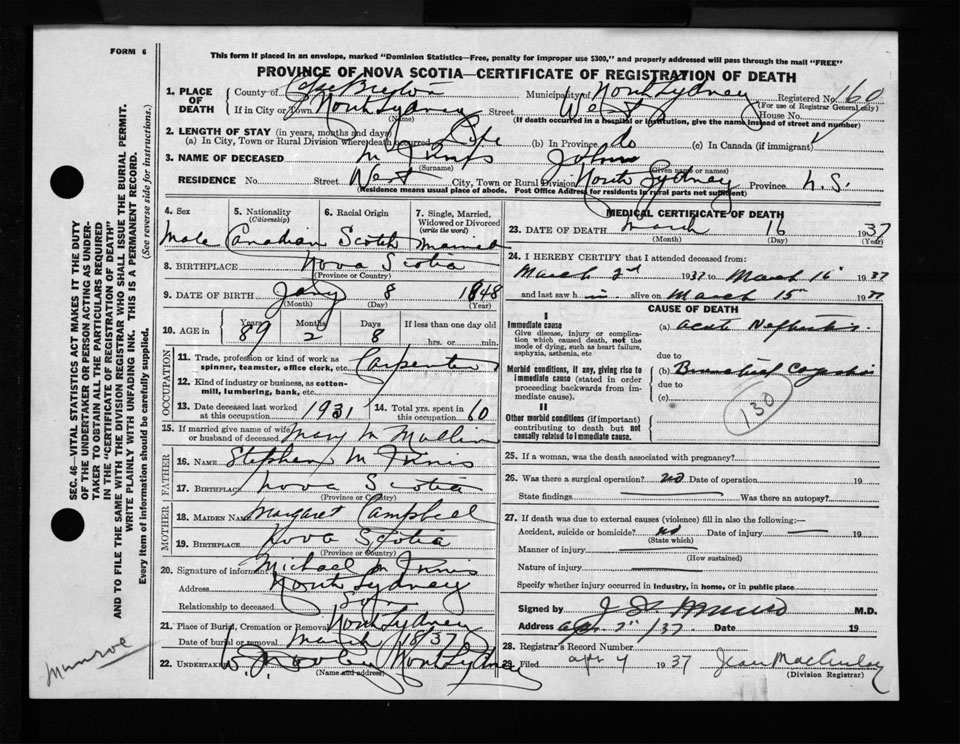 FORM 6
This form if placed in an envelope, marked "Dominion Statistics—Free, penalty for improper use $300," and properly addressed will pass through the mail "FREE"
PROVINCE OF NOVA SCOTIA—CERTIFICATE OF REGISTRATION OF DEATH
1. PLACE OF DEATH County of Cape Breton Municipality of North Sydney Registered No. 160
(For use of Registrar General only)
If in City or Town North Sydney Street West House No.
(Name) (If death occurred in a hospital or institution, give the name instead of street and number)
2. LENGTH OF STAY (in years, months and days)
(a) In City, Town or Rural Division where death occurred Life (b) In Province do (c) In Canada (if immigrant)
3. NAME OF DECEASED John
(Surname) (Given name or names)
RESIDENCE No. Street West City, Town or Rural Division North Sydney Province N.S.
(Residence means usual place of abode. Post Office Address for residents in rural parts not sufficient)
4. Sex 5. Nationality (Citizenship) 6. Racial Origin 7. Single, Married, Widowed or Divorced (write the word)
Male Canadian Scotch Married
8. BIRTHPLACE Nova Scotia
(Province or Country)
9. DATE OF BIRTH Jany 8 1848
(Month) (Day) (Year)
10. AGE in Years Months Days If less than one day old
89 2 8 hrs. or min.
OCCUPATION
11. Trade, profession or kind of work as spinner, teamster, office clerk, etc. Carpenter
12. Kind of industry or business, as cotton-mill, lumbering, bank, etc.
13. Date deceased last worked at this occupation 1931 14. Total yrs. spent in this occupation 60
15. If married give name of wife or husband of deceased Mary M Mullin
FATHER
16. NAME Stephen M Innis
17. BIRTHPLACE Nova Scotia
(Province or Country)
MOTHER
18. MAIDEN NAME Margaret Campbell
19. BIRTHPLACE Nova Scotia
(Province or Country)
20. Signature of informant Michael M Innis
Address North Sydney
Relationship to deceased Son
21. Place of Burial, Cremation or Removal North Sydney
Date of burial or removal March 18/37
22. UNDERTAKER North Sydney
(Name and address)
MEDICAL CERTIFICATE OF DEATH
23. DATE OF DEATH March 16 1937
(Month) (Day) (Year)
24. I HEREBY CERTIFY that I attended deceased from:
March 2nd 1937 to March 16 1937
and last saw h im alive on March 15 1937
CAUSE OF DEATH
I
Immediate cause (a) Acute Nephritis
Give disease, injury or complication which caused death, not the mode of dying, such as heart failure, asphyxia, asthenia, etc
due to
Morbid conditions, if any, giving rise to immediate cause (stated in order proceeding backwards from immediate cause). (b) Bronchial
due to
(c)
II
Other morbid conditions (if important) contributing to death but not causally related to immediate cause.
130
25. If a woman, was the death associated with pregnancy?
26. Was there a surgical operation? no Date of operation 19
State findings Was there an autopsy?
27. If death was due to external causes (violence) fill in also the following:—
Accident, suicide or homicide? no Date of injury 19
(State which)
Manner of injury
(How sustained)
Nature of injury
Specify whether injury occurred in Industry, in home, or in public place
Signed by M.D.
Address Apr 2nd/37. Date 19
28. Registrar's Record Number
29. Filed Apr 4 1937 Jean MacAulay
(Division Registrar)
SEC. 46—VITAL STATISTICS ACT MAKES IT THE DUTY
OF THE UNDERTAKER OR PERSON ACTING AS UNDER-
TAKER TO OBTAIN ALL THE PARTICULARS REQUIRED
IN THE "CERTIFICATE OF REGISTRATION OF DEATH"
AND TO FILE THE SAME WITH THE DIVISION REGISTRAR WHO SHALL ISSUE THE BURIAL PERMIT.
WRITE PLAINLY WITH UNFADING INK. THIS IS A PERMANENT RECORD.
Every item of information should be carefully supplied. (See reverse side for instructions.)
Munroe